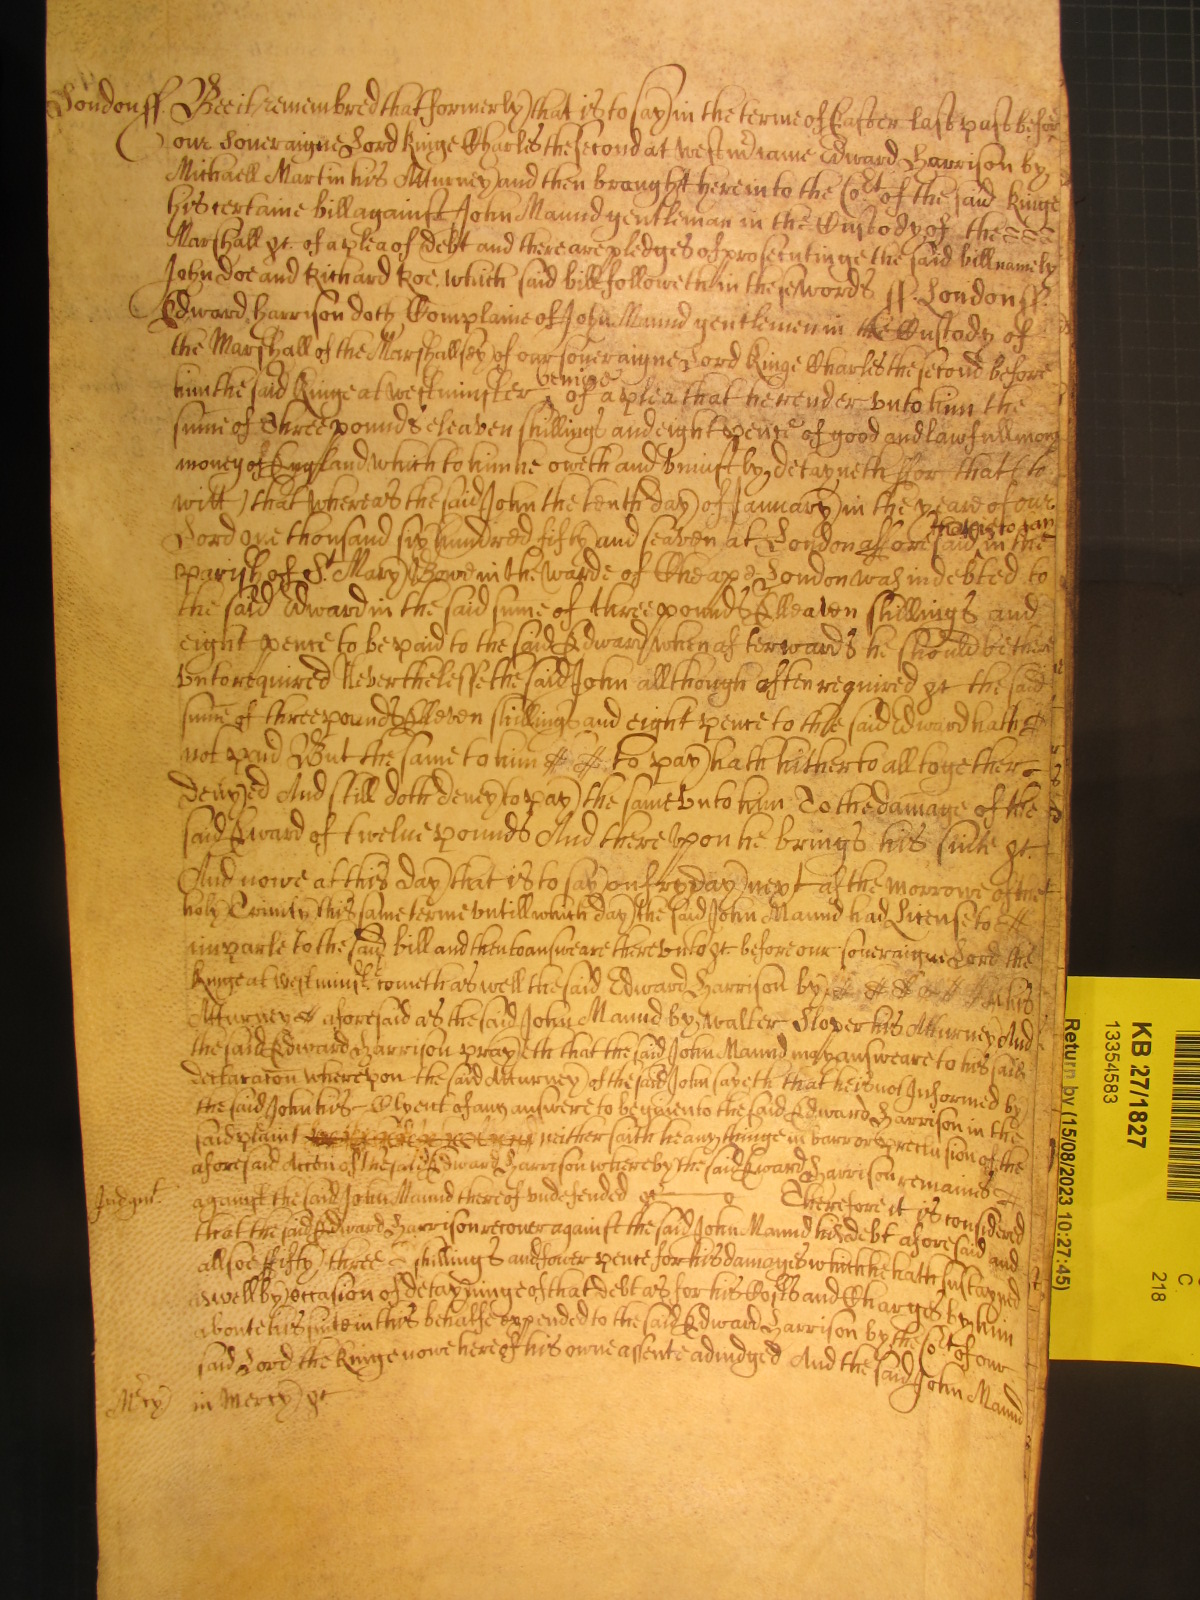 London ss. Bee it remembred that formerly that is to say in the terme of Easter last past before
our Soveraigne Lord Kinge Charles the second at Westmr came Edward Harrison by
Michaell Martin his Atturney and then brought here into the Cort of the said Kinge
his certaine bill against John Maund gentleman in the Custody of the
Marshall &c. of a plea of debt and there are pledges of prosecutinge the said bill namely
John Doe and Richard Roe. which said bill followeth in these words ss. London ss.
Edward Harrison doth Complaine of John Maund gentlemen in the Custody of
the Marshall of the Marshallsey of our soveraigne Lord Kinge Charles the second before
him the said Kinge at westminster beinge of a plea that he render unto him the
summe of Three pounds eleaven shillings and eight pence of good and lawfull mony
money of England which to him he oweth and uniustly detayneth for that (to
witt) that whereas the said John the tenth day of January in the yeare of our
Lord one thousand six hundred fifty and seaven at London afforesaid that is to say in the
parish of St. Mary Bowe in the warde of Cheape London was indebted to
the said Edward in the said sume of three pounds Elleaven shillings and
eight pence to be paid to the said Edward when afterwards he should be there
unto required Neverthelesse the said John allthough often required &c the said
sume of three pounds Elleven shillings and eight pence to the said Edward hath
not paid But the same to him to pay hath hitherto alltogether
denyed And still doth deney to pay the same unto him To the damage of the
said Edward of twelve pounds And thereupon he brings his suite &c.
And nowe at this day that is to say on fryday next after the morrowe of the
holy Trinity this same terme untill which day the said John Maund had License to
imparle to the said bill and then to answeare thereunto &c. before our soveraigne Lord the
Kinge at Westminstr cometh as well the said Edward Harrison by his
Atturney aforesaid as the said John Maund by Walter Sloper his Atturney And
the said Edward Harrison prayeth that the said John Maund may answeare to his said
declaracon whereupon the said Atturney of the said John sayeth that he is not Informed by
the said John his Clyent of any answere to be given to the said Edward Harrison in the
said plaint neither saith he any thinge in barr or preclusion of the
aforesaid Accon of the said Edward Harrison whereby the said Edward Harrison remaines
Judgmt. against the said John Maund thereof undefended &c Therefore it is considered
that the said Edward Harrison recover against the said John Maund his debt aforesaid and
allsoe fifty three shillings and fower pence for his damages which he hath sustayned
aswell by occasion of detayninge of that debt as for his Costs and Charges by him
aboute his suite in this behalfe expended to the said Edward Harrison by the Cort of our
said Lord the Kinge nowe here of his owne assente adiudged And the said John Maund
Mercy in mercy &c
KB 27/1827
13354583
Return by (15/08/2023 10:27:45)
C
218